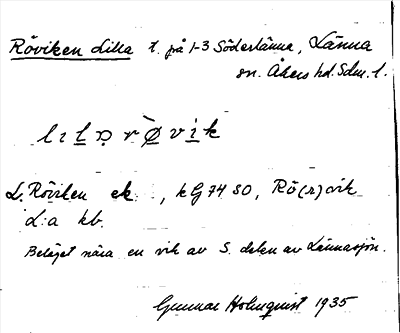 Röviken Lilla t. på 1-3 Söderlänna, Länna
sn. Åkers hd. Sdm. l.
L. Röviken ek. , kG 74 80, Rö(r)vik
L:a kb.
Beläget nära en vik av S. delen av Lännasjön.
Gunnar Holmquist 1935